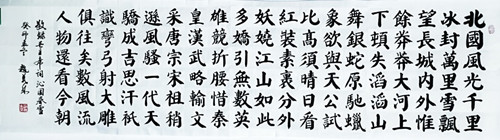 北國風光千里
冰封萬里雪飄
望長城内外惟
餘莽莽大河上
下頓失滔滔山
舞銀蛇原馳蠟
象欲與天公試
比高須晴日看
紅裝素裹分外
妖嬈江山如此
多嬌引無數英
雄競折腰惜秦
皇漢武略輸文
采唐宗宋祖稍
遜風騷一代天
驕成吉思汗祇
識彎弓射大雕
俱往矣數風流
人物還看今朝
敬録毛主席詞沁園春雪
癸卯